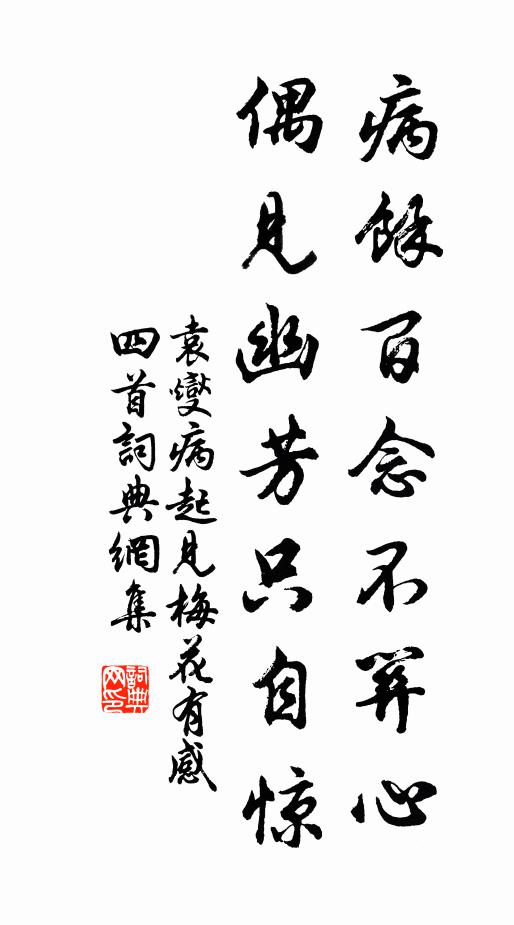 病餘百念不關心
偶見幽芳只自惊
袁燮病起見梅花有感
四首詞典網集
詞典
网印